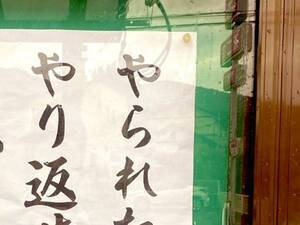 やられた
やり返